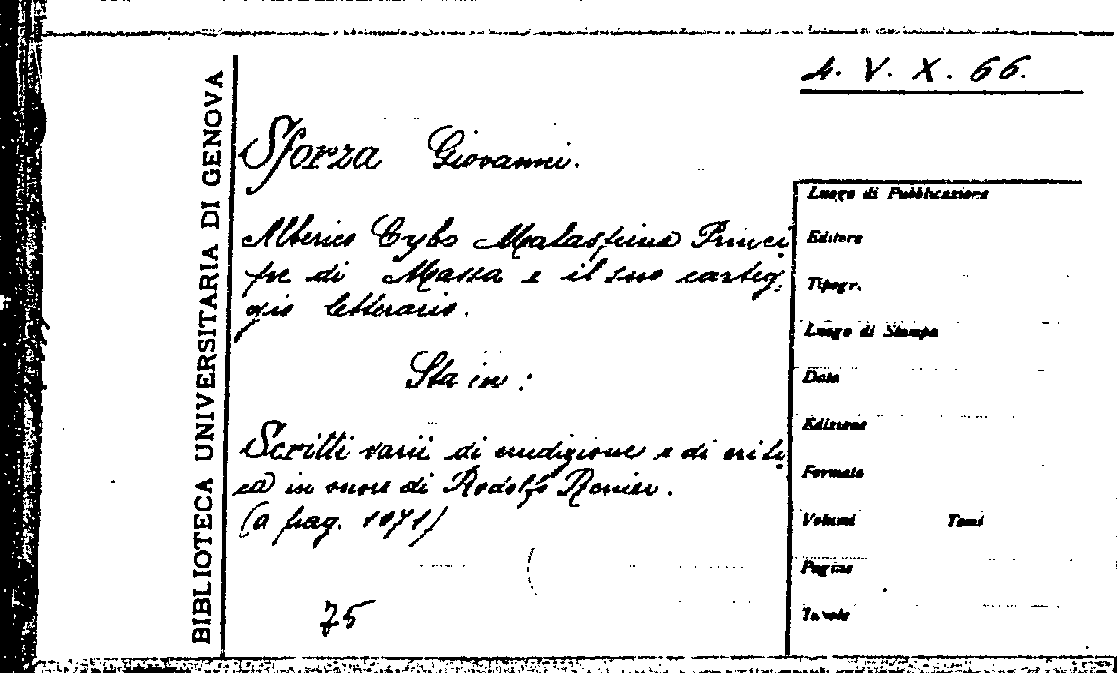 BIBLIOTECA UNIVERSITARIA DI GENOVA
4. V. X. 66.
Sforza Giovanni.
Alberico Cybo Malaspina Princi
pe di Massa e il suo carteg,
gio letterario.
Sta in:
Scritti varii di erudizione e di criti,
ca in onore di Rodolfo Renier.
(a pag. 1071)
75
Luogo di Pubblicazione
Editore
Tipogr.
Luogo di Stampa
Data
Edizione
Formato
Volumi Tomi
Pagine
Tavole